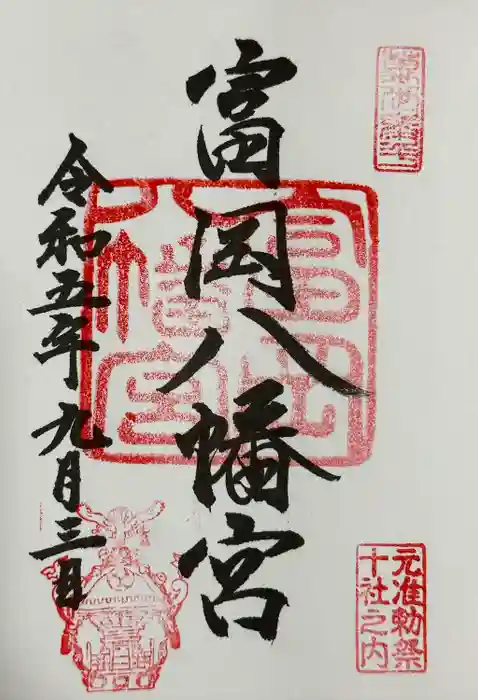 元准勅祭
十社之内
富岡八幡宮
令和五年九月三日